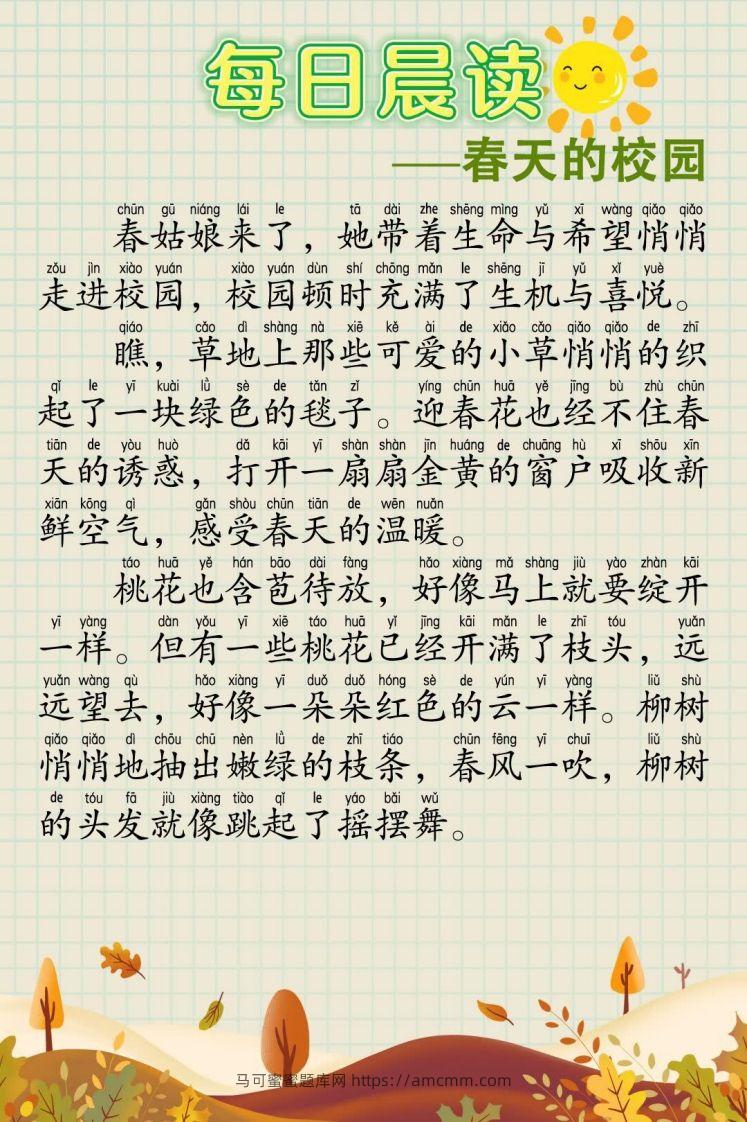 每日晨读
——春天的校园
chūn gū niáng lái le tā dài zhe shēng mìng yǔ xī wàng qiǎo qiǎo
春姑娘来了，她带着生命与希望悄悄
zǒu jìn xiào yuán xiào yuán dùn shí chōng mǎn le shēng jī yǔ xǐ yuè
走进校园，校园顿时充满了生机与喜悦。
qiáo cǎo dì shàng nà xiē kě ài de xiǎo cǎo qiǎo qiǎo de zhī
瞧，草地上那些可爱的小草悄悄的织
qǐ le yī kuài lǜ sè de tǎn zǐ yíng chūn huā yě jīng bù zhù chūn
起了一块绿色的毯子。迎春花也经不住春
tiān de yòu huò dǎ kāi yī shàn shàn jīn huáng de chuāng hù xī shōu xīn
天的诱惑，打开一扇扇金黄的窗户吸收新
xiān kōng qì gǎn shòu chūn tiān de wēn nuǎn
鲜空气，感受春天的温暖。
táo huā yě hán bāo dài fàng hǎo xiàng mǎ shàng jiù yào zhàn kāi
桃花也含苞待放，好像马上就要绽开
yī yàng dàn yǒu yī xiē táo huā yǐ jīng kāi mǎn le zhī tóu yuǎn
一样。但有一些桃花已经开满了枝头，远
yuǎn wàng qù hǎo xiàng yī duǒ duǒ hóng sè de yún yī yàng liǔ shù
远望去，好像一朵朵红色的云一样。柳树
qiǎo qiǎo dì chōu chū nèn lǜ de zhī tiáo chūn fēng yī chuī liǔ shù
悄悄地抽出嫩绿的枝条，春风一吹，柳树
de tóu fā jiù xiàng tiào qǐ le yáo bǎi wǔ
的头发就像跳起了摇摆舞。
马可蜜蜜题库网 https://amcmm.com/